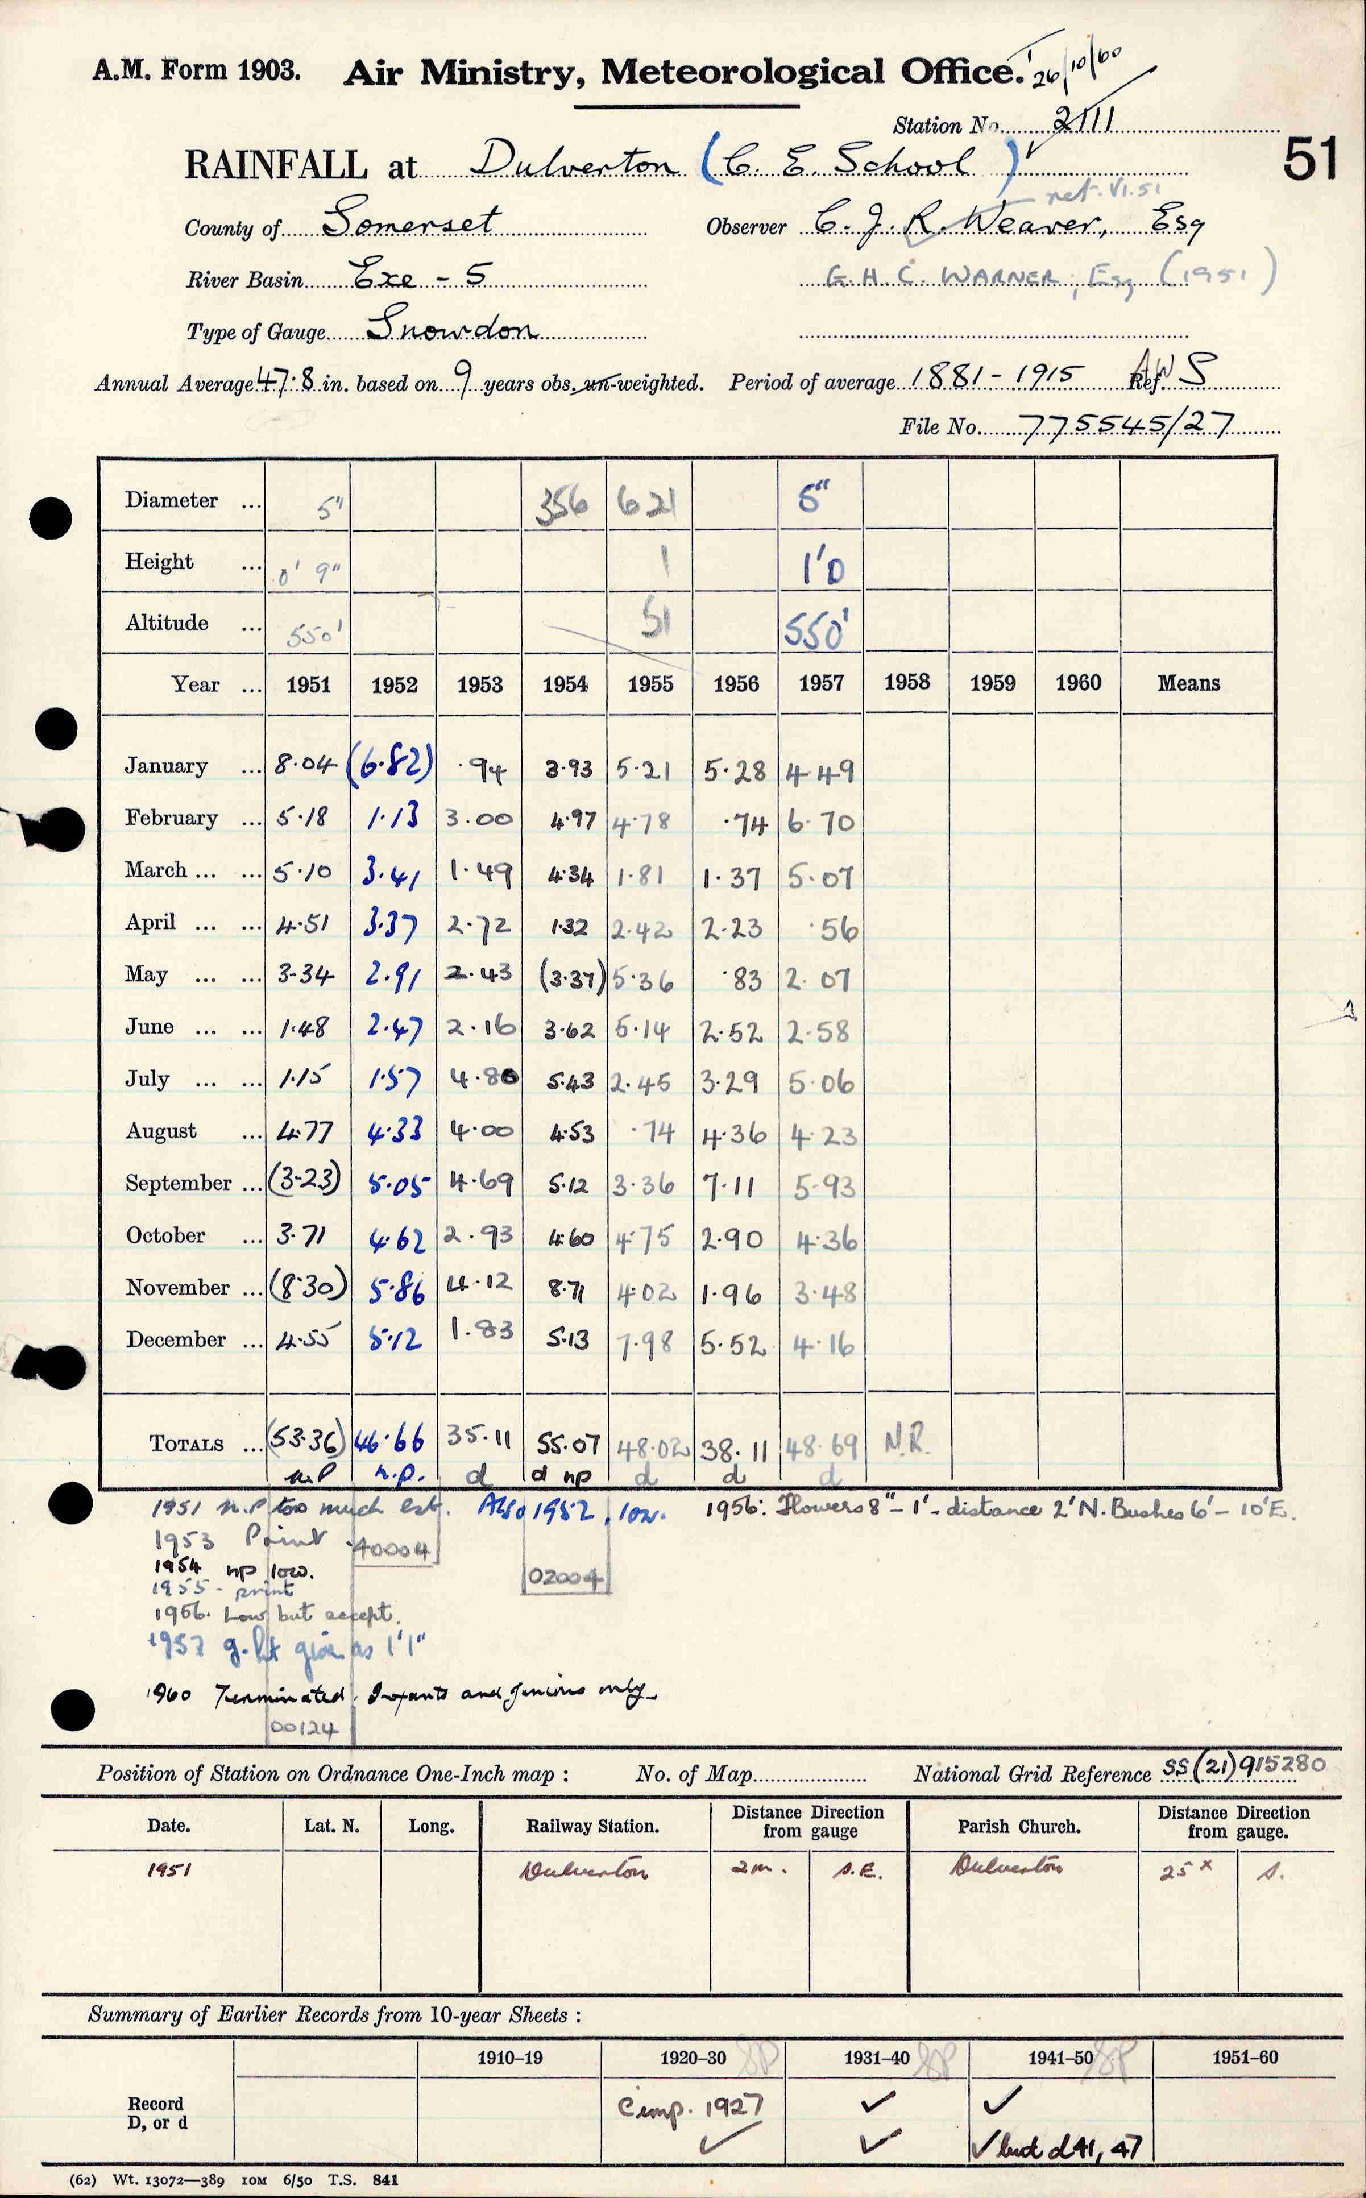 26/10/60
A.M. Form 1903. Air Ministry, Meteorological Office.
Station No. 2111
RAINFALL at Dulverton (C. E. School) 51
ret. VI.51
County of Somerset Observer C. J. R. Weaver, Esq
River Basin Exe - 5 G. H. C. WARNER, Esq (1951)
Type of Gauge Snowdon
Annual Average 47.8 in. based on 9 years obs. un-weighted. Period of average 1881-1915 Ref. AWS
File No. 775545/27
Diameter ... 5" 356 621 5"
Height ... 0' 9" 1 1'0
Altitude ... 550' 51 550'
Year ... 1951 1952 1953 1954 1955 1956 1957 1958 1959 1960 Means
January ... 8.04 (6.82) .94 3.93 5.21 5.28 4.49
February ... 5.18 1.13 3.00 4.97 4.78 .74 6.70
March ... ... 5.10 3.41 1.49 4.34 1.81 1.37 5.07
April ... ... 4.51 3.37 2.72 1.32 2.42 2.23 .56
May ... ... 3.34 2.91 2.43 (3.37) 5.36 .83 2.07
June ... ... 1.48 2.47 2.16 3.62 5.14 2.52 2.58
July ... ... 1.15 1.57 4.80 5.43 2.45 3.29 5.06
August ... 4.77 4.33 4.00 4.53 .74 4.36 4.23
September ... (3.23) 5.05 4.69 5.12 3.36 7.11 5.93
October ... 3.71 4.62 2.93 4.60 4.75 2.90 4.36
November ... (8.30) 5.86 4.12 8.71 4.02 1.96 3.48
December ... 4.55 5.12 1.83 5.13 7.98 5.52 4.16
TOTALS ... (53.36) 46.66 35.11 55.07 48.02 38.11 48.69 N.R.
n.P n.p. d d np d d d
1951 n.P too much est. Also 1952, low. 1956: Flowers 8" - 1' - distance 2' N. Bushes 6' - 10' E.
1953 Print 40004
1954 np low. 02004
1955 - print
1956. Low but accept.
1957 g. ht given as 1'1"
1960 Terminated. Infants and Juniors only
00124
Position of Station on Ordnance One-Inch map : No. of Map National Grid Reference SS(21)915280
Date. Lat. N. Long. Railway Station. Distance Direction from gauge Parish Church. Distance Direction from gauge.
1951 Dulverton 2m. S.E. Dulverton 25x S.
Summary of Earlier Records from 10-year Sheets :
1910-19 1920-30 SP 1931-40 SP 1941-50 SP 1951-60
Record D, or d Comp. 1927 ✓ ✓
✓ ✓ ✓ but d 41, 47
(62) Wt. 13072—389 10M 6/50 T.S. 841